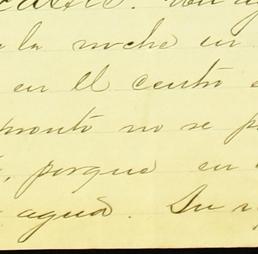 la noche un
en el centro
pronto no se
, porque en
agua. Su